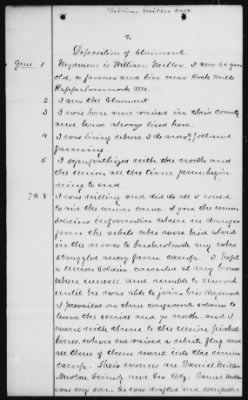 William Miller
2.
Deposition of Claimant.
Ques. 1 My name is William Miller. I am 60 years
old, a farmer and live near Rock Mills
Rappahannock Va.
2 I am the Claimant
3 I was born and raised in this county
and have always lived here.
4 I was living where I do now
farming
5 I sympathized with the north and
the union all the time from begin-
ning to end
7 & 8 I was willing and did do all I could
to aid the union cause. I gave the union
soldiers information when in danger
from the rebels who were hid about
in the woods to bushwhack any who
straggled away from camp. I kept
a Union Soldier concealed at my house
when and unable to
until he was able to join his regiment
I prevailed on three conscripts to
leave the service and go north, and I
went with them to the union picket
lines, where we raised a white flag and
all three of them went into the union
camp. Their names are Daniel Miller
and
was my son. he was drafted and